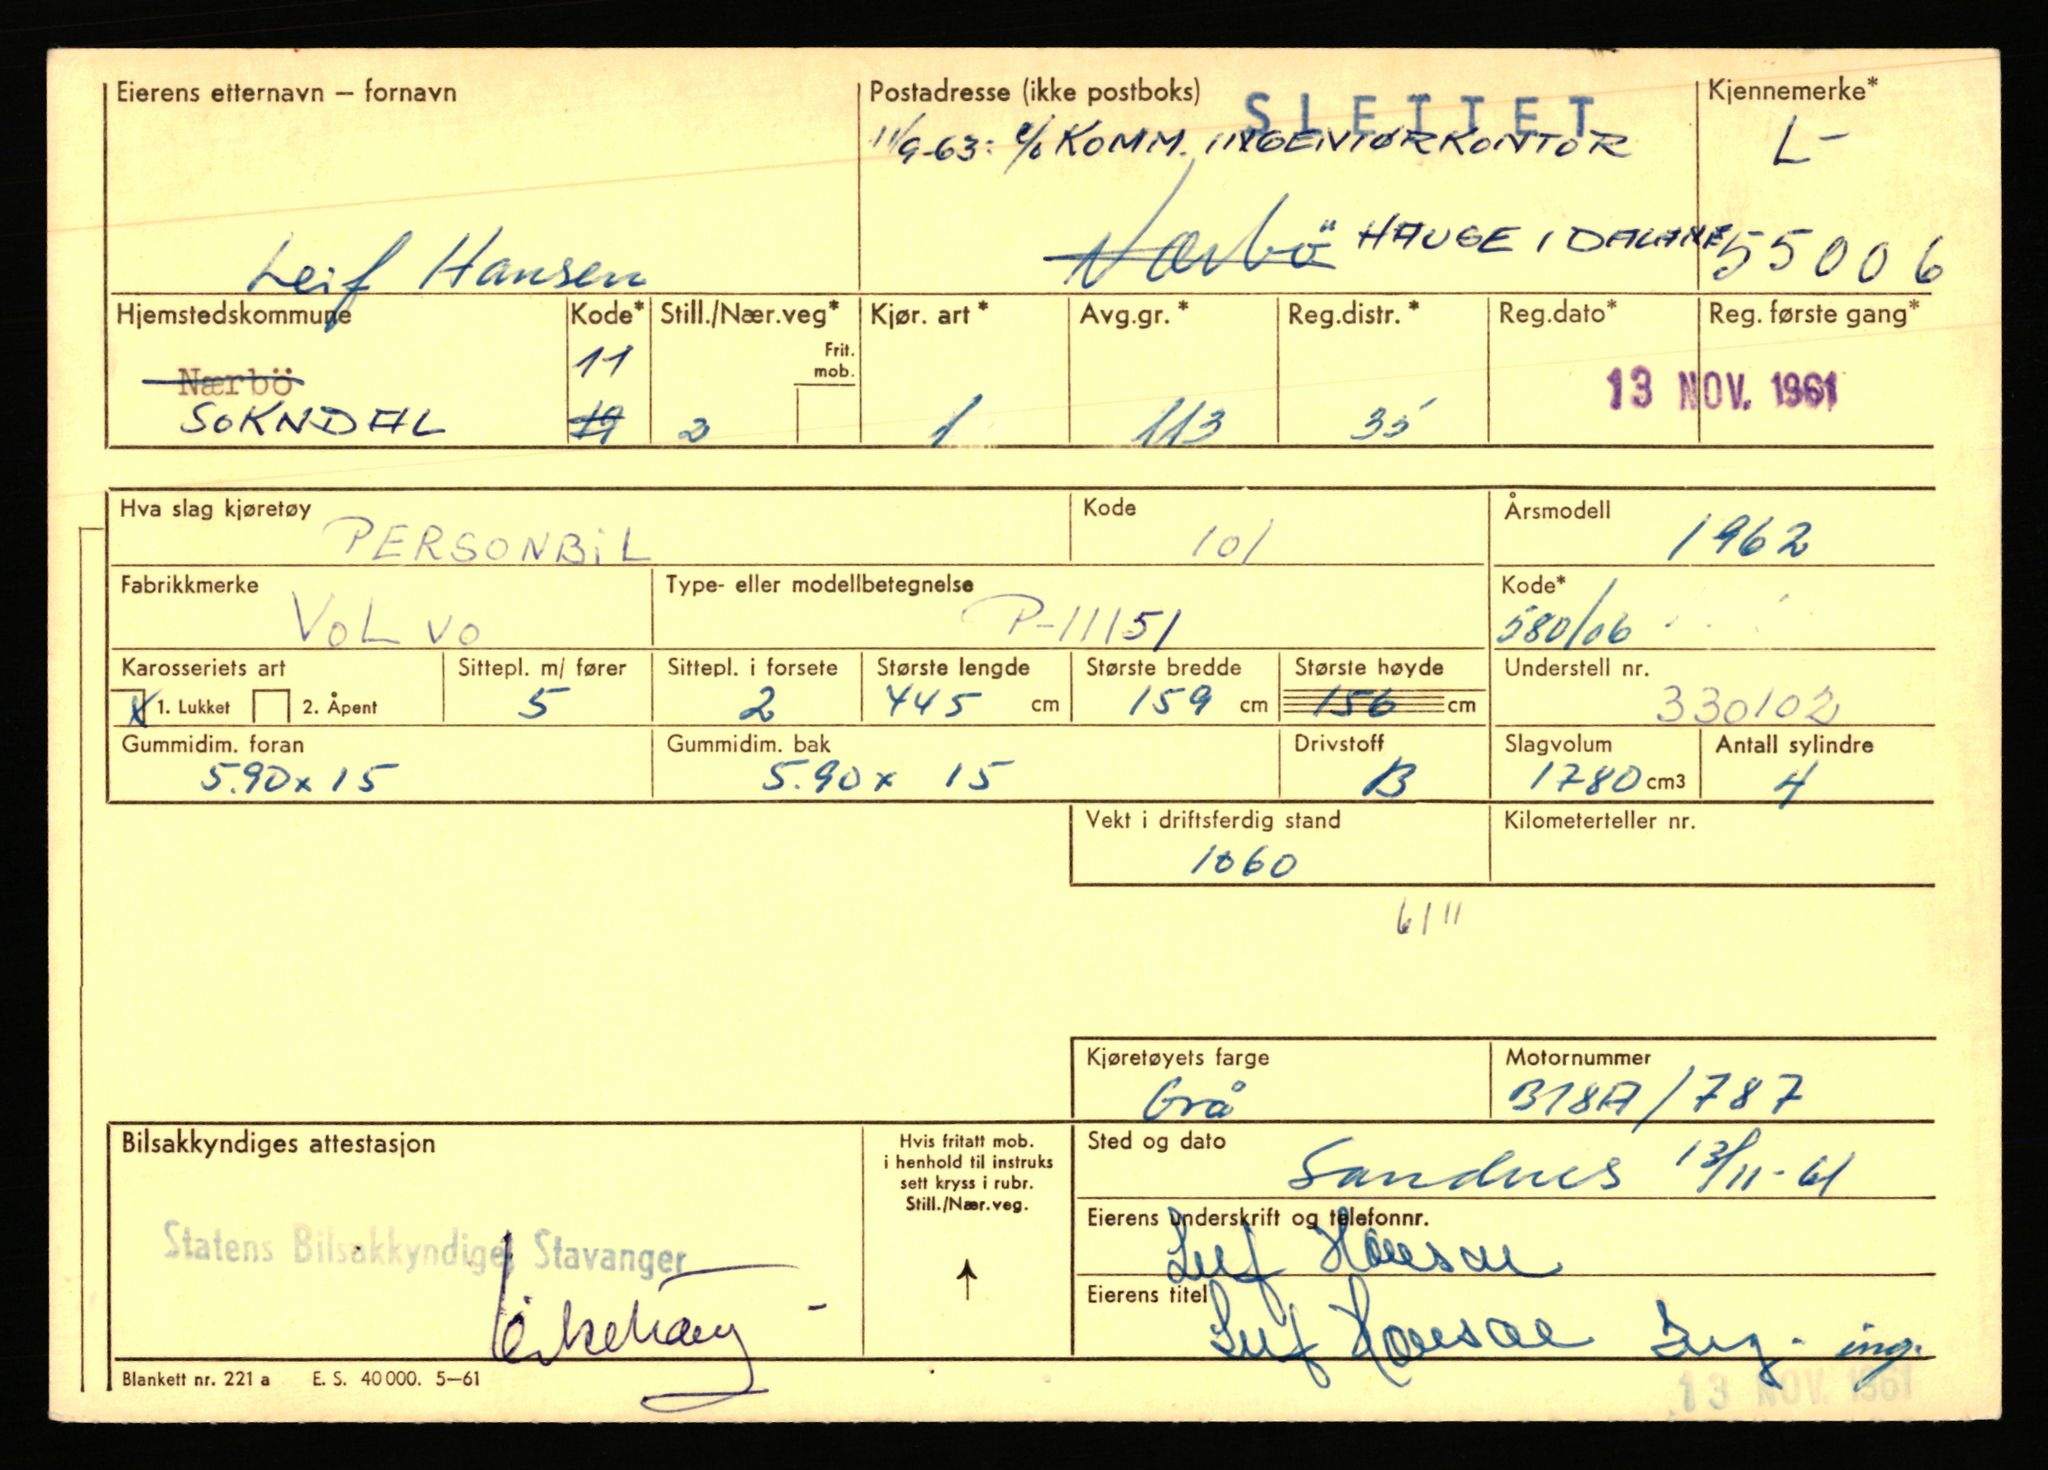 Eierens etternavn — fornavn
Postadresse (ikke postboks)
SLETTET
Kjennemerke*
11/9-63: c/o KOMM. INGENIØRKONTOR
L-
Leif Hansen
Nærbö HAUGE I DALANE
55006
Hjemstedskommune
Kode*
Still./Nær.veg*
Kjør. art *
Avg.gr. *
Reg.distr. *
Reg.dato*
Reg. første gang*
Frit. mob.
11
Nærbö
13 NOV. 1961
SOKNDAL
19
2
1
113
35
Hva slag kjøretøy
PERSONBIL
Kode
101
Årsmodell
1962
Fabrikkmerke
VOLVO
Type- eller modellbetegnelse
P-11151
Kode*
580/06
Karosseriets art
Sittepl. m/ fører
Sittepl. i forsete
Største lengde
Største bredde
Største høyde
Understell nr.
X 1. Lukket
2. Åpent
5
2
445 cm
159 cm
156 cm
330102
Gummidim. foran
Gummidim. bak
Drivstoff
Slagvolum
Antall sylindre
5.90 x 15
5.90 x 15
B
1780 cm3
4
Vekt i driftsferdig stand
Kilometerteller nr.
1060
6/11
Kjøretøyets farge
Motornummer
Grå
B18A/787
Bilsakkyndiges attestasjon
Hvis fritatt mob.
i henhold til instruks
sett kryss i rubr.
Still./Nær.veg.
Sted og dato
Sandnes 13/11-61
Eierens underskrift og telefonnr.
Leif Hansen
Statens Bilsakkyndige, Stavanger
Eierens titel
Leif Hansen Ing. ing.
Blankett nr. 221 a E. S. 40 000. 5—61
13 NOV. 1961